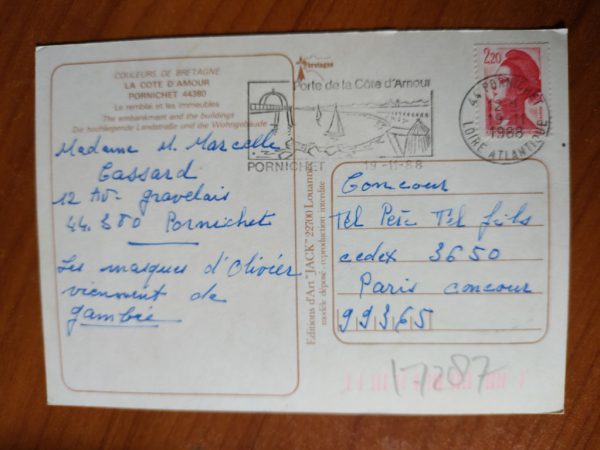 COULEURS DE BRETAGNE
LA COTE D'AMOUR
PORNICHET 44380
Le remblai et les immeubles
The embankment and the buildings
Die hochliegende Landstraße und die Wohngebäude
Madame M. Marcelle
Cassard
12 Av. gravelais
44.380 Pornichet
Les masques d'Olivier
viennent de
gambie
bretagne
Porte de la Côte d'Amour
PORNICHET 19-11-88
44 PORNICHET
1988
LOIRE ATLANTIQUE
2,20
Editions d'Art "JACK" 22700 Louannec
modèle déposé - reproduction interdite
Concour
Tel Père Tel fils
cedex 3650
Paris concour
99365
17287